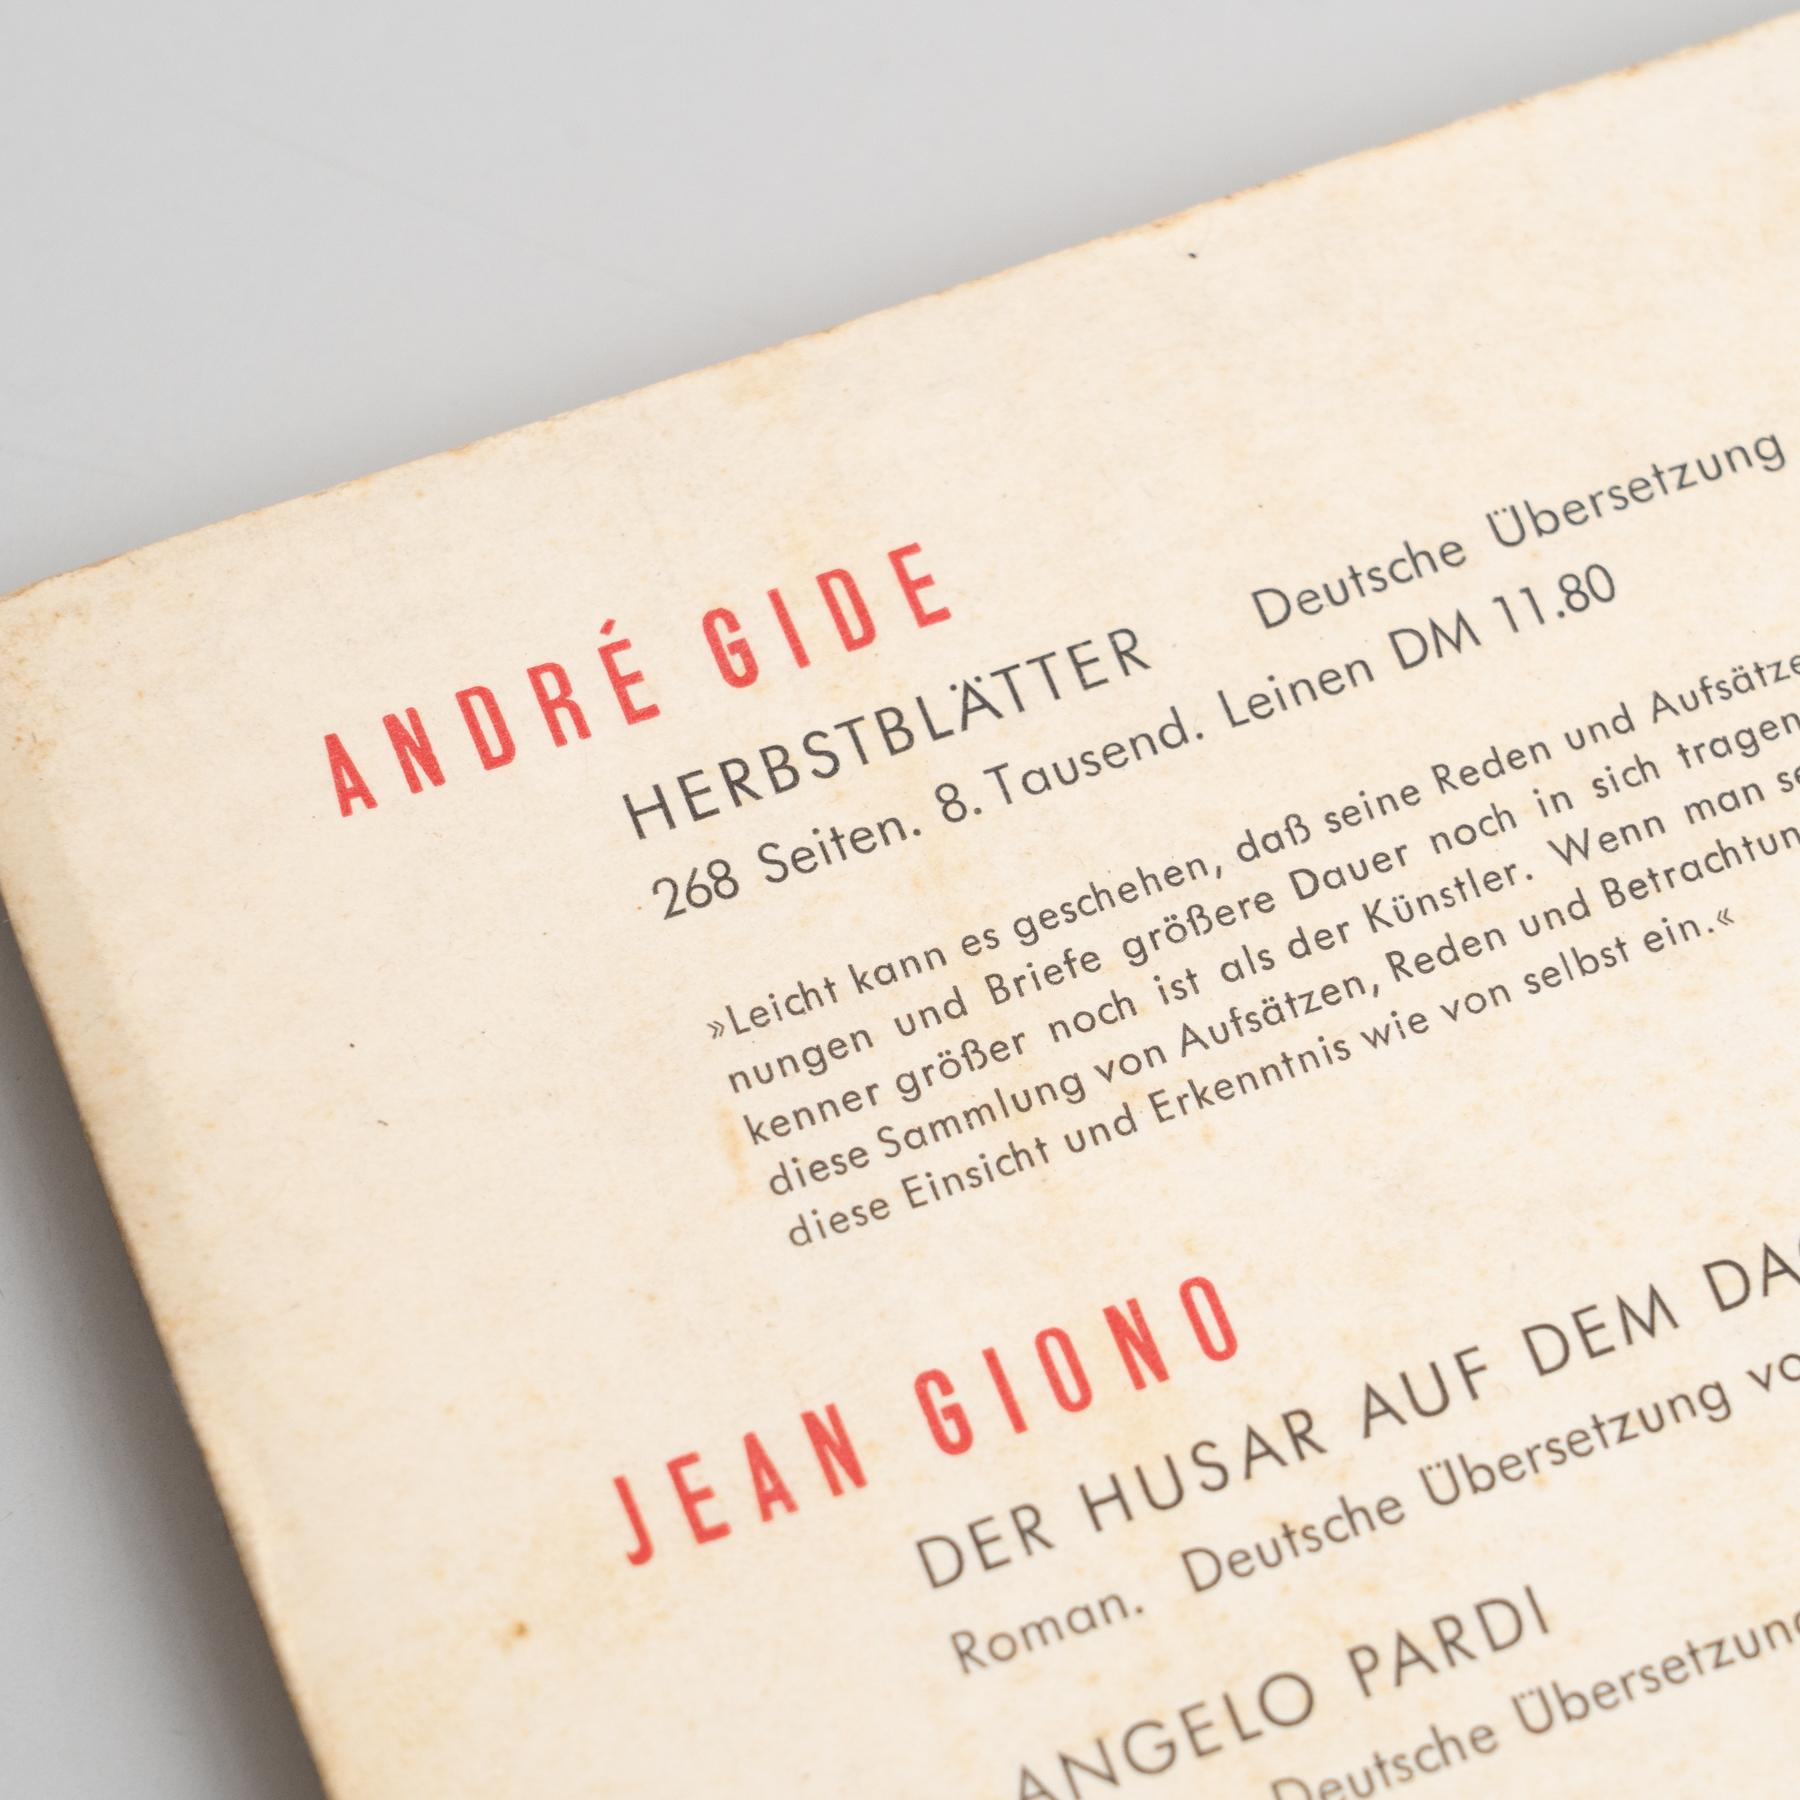 ANDRÉ GIDE
HERBSTBLÄTTER Deutsche Übersetzung
268 Seiten. 8. Tausend. Leinen DM 11.80
»Leicht kann es geschehen, daß seine Reden und Aufsätze
nungen und Briefe größere Dauer noch in sich tragen
kenner größer noch ist als der Künstler. Wenn man
diese Sammlung von Aufsätzen, Reden und Betrachtun
diese Einsicht und Erkenntnis wie von selbst ein.«
JEAN GIONO
DER HUSAR AUF DEM
Roman. Deutsche Übersetzung
ANGELO PARDI
Deutsche Übersetzung